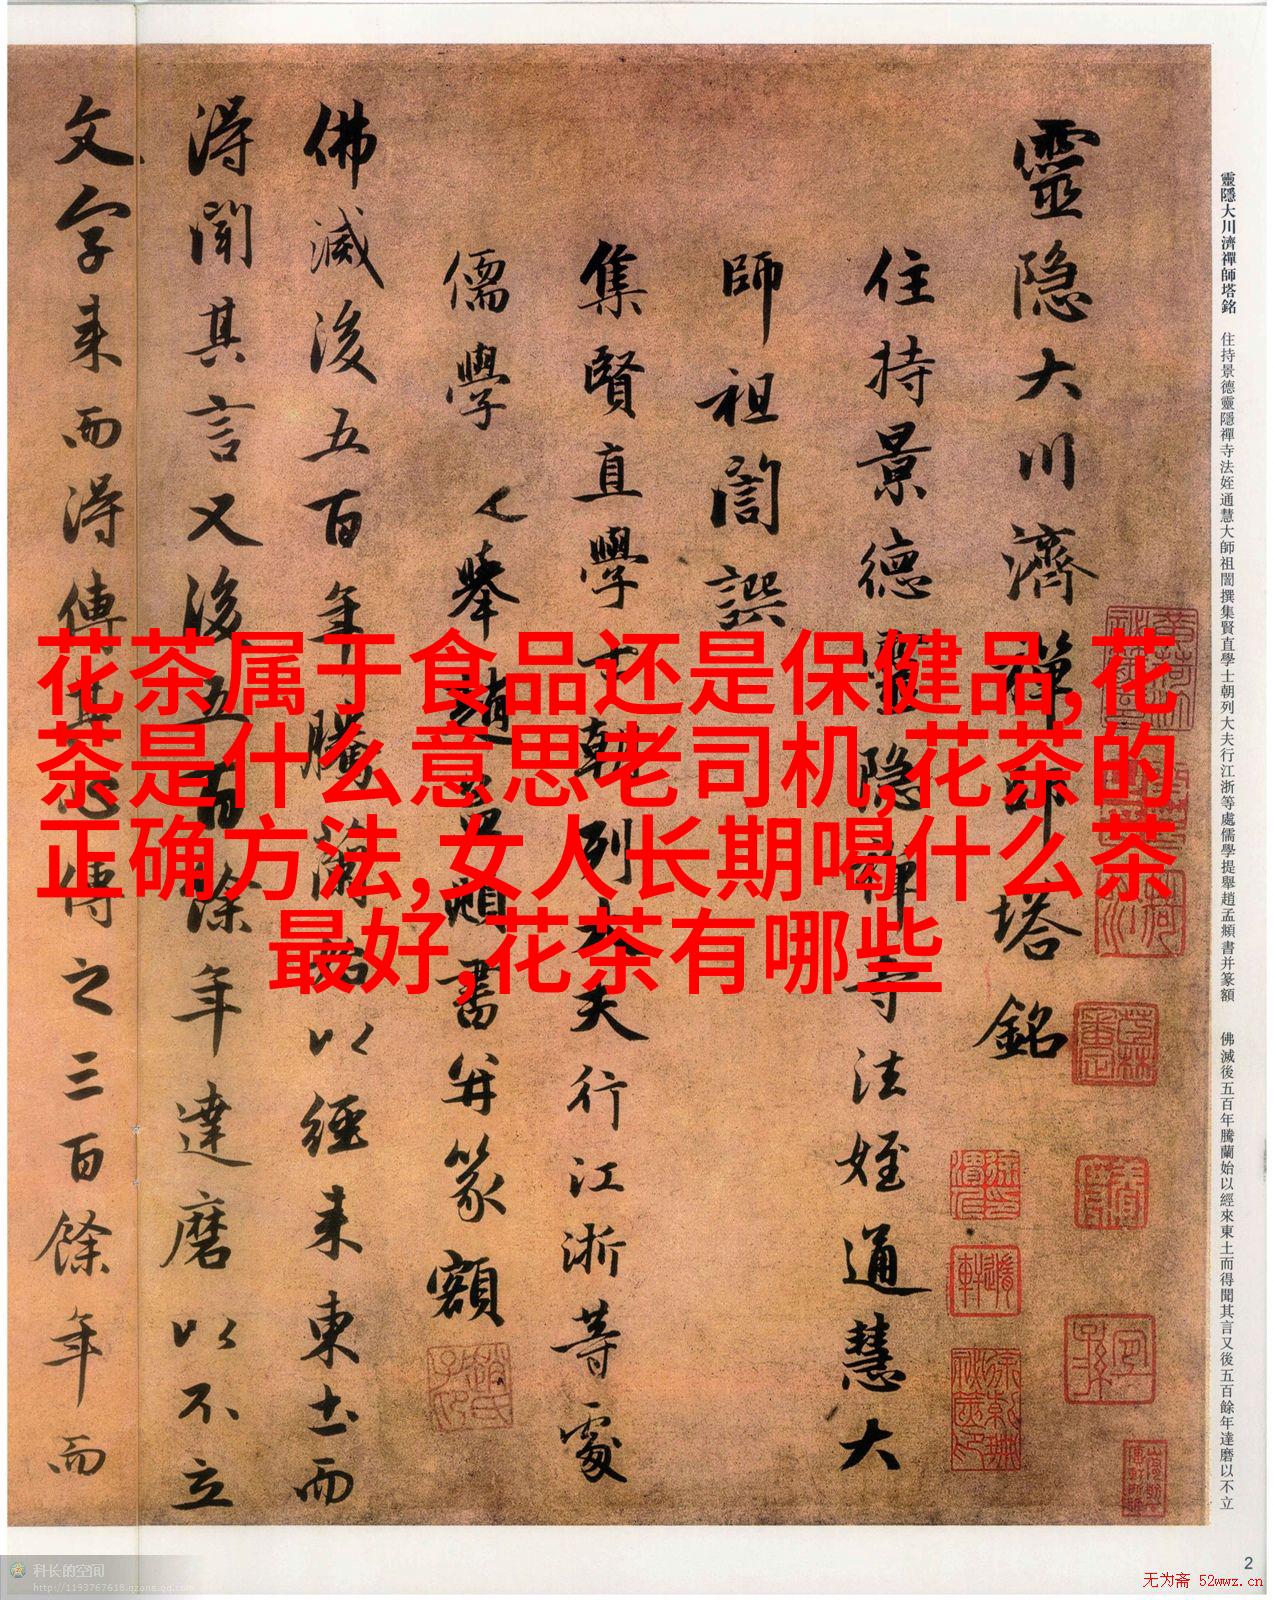 靈隱大川濟禪師塔銘
住持景德靈隱禪寺法姪通慧大
師祖誾譔
集賢直學士朝列大夫行江浙等處
儒學提舉趙孟頫書并篆額
佛滅後五百年騰蘭始以經来東土而
得聞其言又後五百餘年達磨以不立
文字来而得傳其心傳之三百餘年而
靈隱大川濟禪師塔銘 住持景德靈隱禪寺法姪通慧大師祖誾撰集賢直學士朝列大夫行江浙等處儒學提舉趙孟頫書并篆額 佛滅後五百年騰蘭始以經來東土而得聞其言又後五百餘年達磨以不立
花茶属于食品还是保健品,花
茶是什么意思老司机,花茶的
正确方法,女人长期喝什么茶
最好,花茶有哪些
2
科长的空间
http://1193767618.qzone.qq.com
无为斋 52wwz.cn